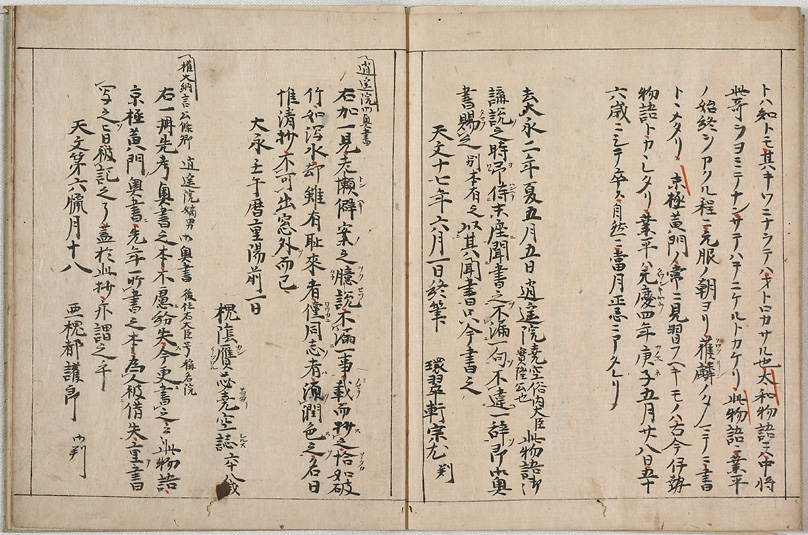 トハ知トモ其ハキワニナラテハオトロカサル也太和物語ニ中将
此哥ヲヨミテナンサテハキニケルトカケリ此物語ニ業平
ノ始終ヲアクル程ニ元服ノ朝ヨリ獲麟ノタメニ書
トヽメタリ京極黄門ノ常ニ見習フヘキモノハ古今伊勢
物語トカヽレタリ業平ハ元慶四年庚子五月廿八日五十
六歳ニシテ卒ス月然ニ當月正忌ニアタレリ
去大永二年夏五月五日逍遥院尭空俗内大臣実隆公也此物語御
講説之時予侍末座聞書之不漏一句不違一辞即御奥
書賜之別本有之以其聞書只今書之
天文十七年六月一日終筆 環翠軒宗尤判
逍遥院御奥書
右加一見老懶僻案之臆説不漏一事載而抄之恰如破
竹如瀉水却雖有恥來者僅同志者須潤色之名曰
惟清抄不可出窓外而已
大永壬午暦重陽前一日
槐陰贋苾尭空誌六十八歳
権大納言公條卿 逍遥院嫡男御奥書 後任右大臣号称名院
右一冊先考奥書之本不慮紛失今更書之
京極黄門奥書先年所書之本為人被借失重書
写之旨被記之了蓋於此抄亦謂之乎
天文第六臘月十八 亜槐都護郎 御判